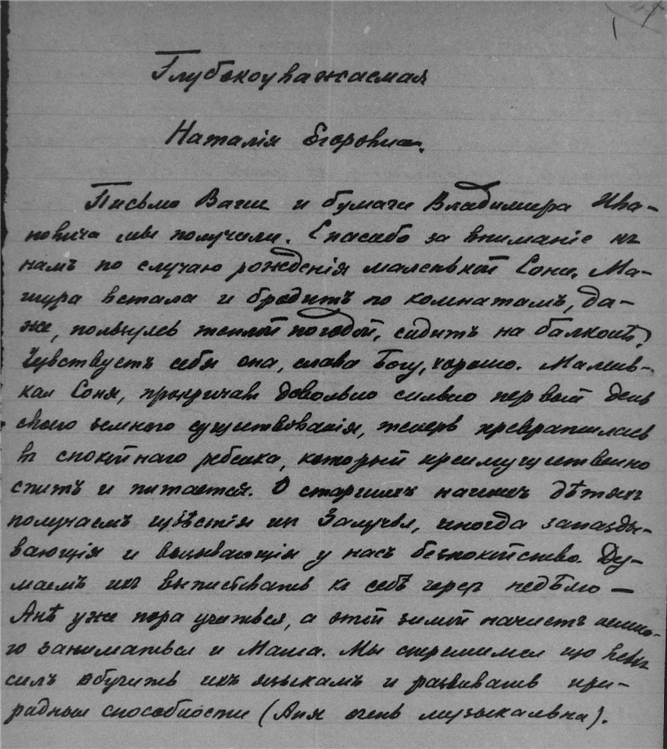 Глубокоуважаемая
Наталія Егоровна.
Письмо Ваше и бумаги Владимира Ива-
новича мы получили. Спасибо за вниманіе къ
намъ по случаю рожденія маленькой Сони. Ма-
шура встала и бродитъ по комнатамъ, да-
же, пользуясь теплой погодой, сидитъ на балконѣ.
Чувствуетъ себя она, слава Богу, хорошо. Малень-
кая Соня, прокричавъ довольно сильно первый день
своего земного существованія, теперь превратилась
въ спокойнаго ребенка, который преимущественно
спитъ и питается. О старшихъ нашихъ дѣтяхъ
получаемъ извѣстія изъ Залучья, иногда запазды-
вающія и вызывающія у насъ безпокойство. Ду-
маемъ ихъ выписывать къ себѣ черезъ недѣлю —
Анѣ уже пора учиться, а этой зимой начнетъ немно-
го заниматься и Маша. Мы стремимся изо всѣхъ
силъ обучить ихъ языкамъ и развивать при-
родныя способности (Аня очень музыкальна).